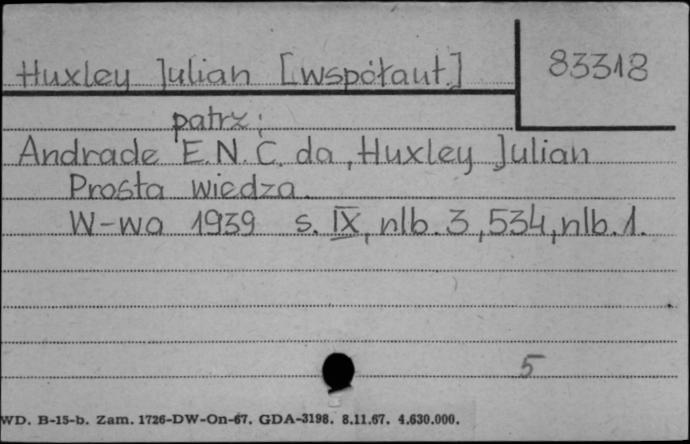 Huxley Julian [współaut.]
83318
patrz:
Andrade E.N.C. da, Huxley Julian
Prosta wiedza.
W-wa 1939 s. IX, nlb. 3, 534, nlb. 1.
5
WD. B-15-b. Zam. 1726-DW-On-67. GDA-3198. 8.11.67. 4.630.000.